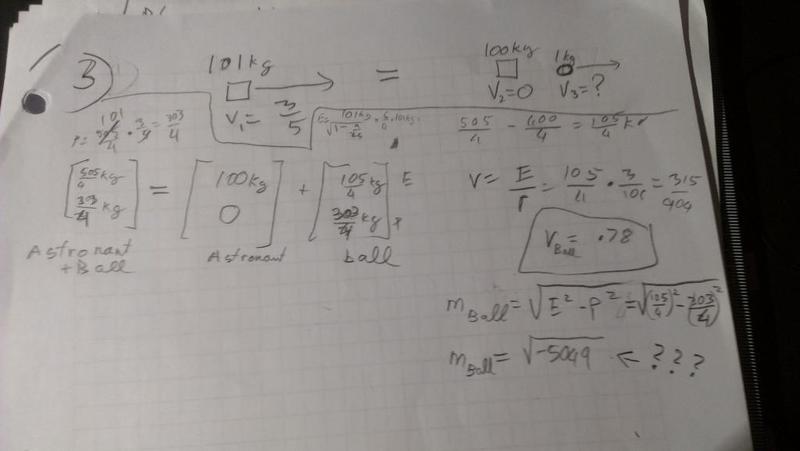 3)
101kg
V₁ = 3/5
=
100kg
V₂=0
1kg
V₃=?
505/4 - 400/4 = 105/4 kg
[505/4 kg, 303/4 kg] = [100kg, 0] + [105/4 kg, 303/4 kg] E P
Astronant + Ball
Astronant
ball
V = E/P = 105/4 · 3/101 = 315/404
V_Ball = .78
m_Ball = √(E² - P²) = √((105/4)² - (303/4)²)
m_Ball = √-5049 ← ???